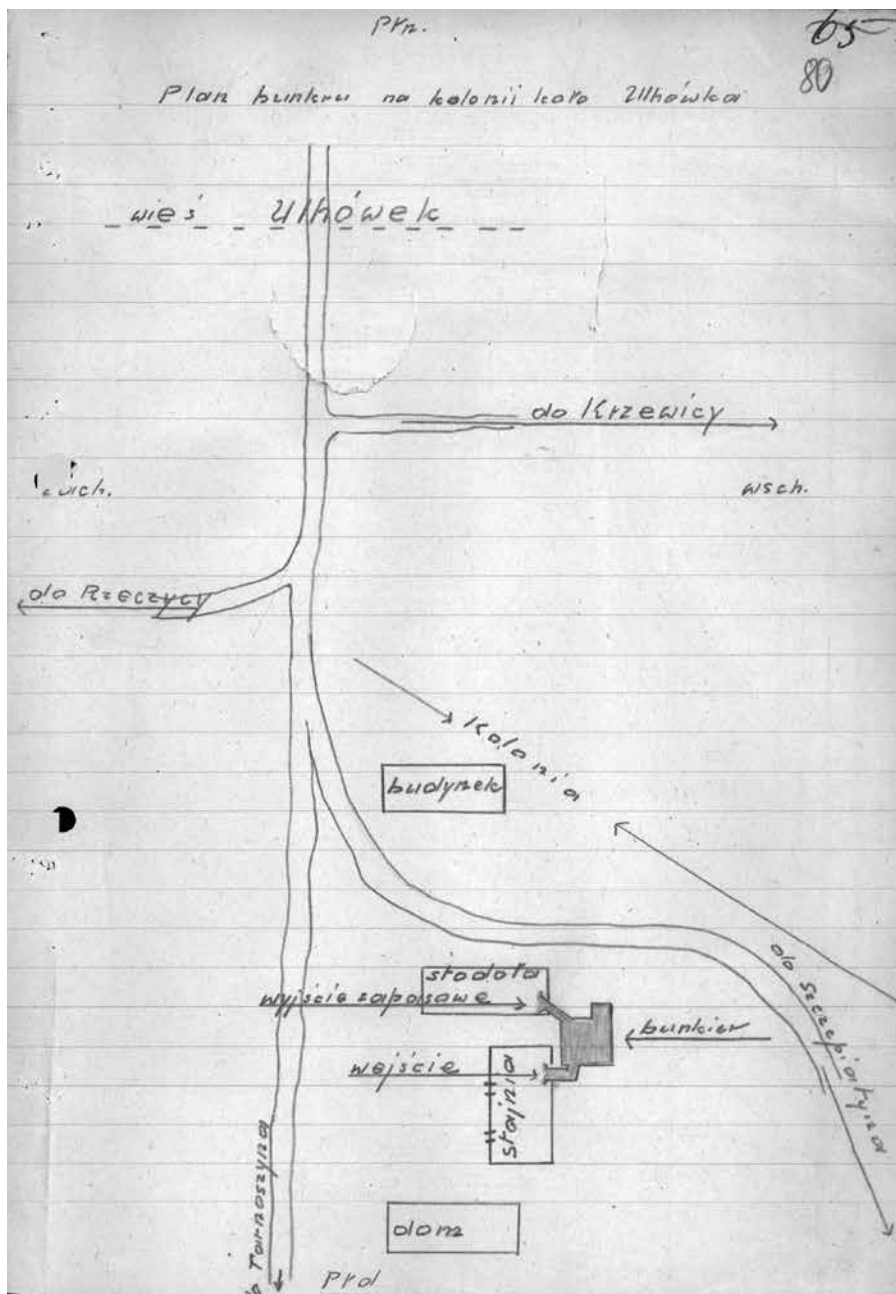 Płn.
65
80
Plan bunkru na kolonii koło Ulhówka
wieś Ulhówek
do Krzewicy
wsch.
do Rzeczycy
Kolonia
budynek
do Szczepiatyna
stodoła
wyjście zapasowe
bunkier
wejście
stajnia
do Tarnoszyna
dom
Płd